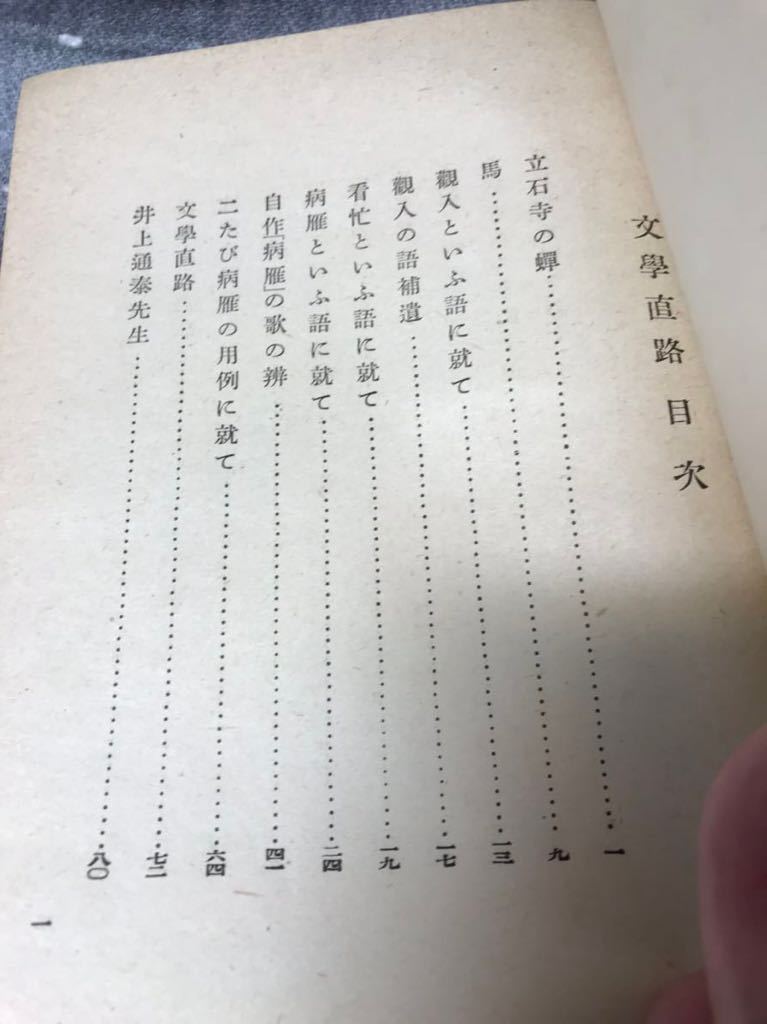 文學直路 目次
立石寺の蟬……一
馬……九
觀入といふ語に就て……一三
觀入の語補遺……一七
看忙といふ語に就て……一九
病雁といふ語に就て……二四
自作「病雁」の歌の辨……四一
二たび病雁の用例に就て……六四
文學直路……七二
井上通泰先生……八〇
一